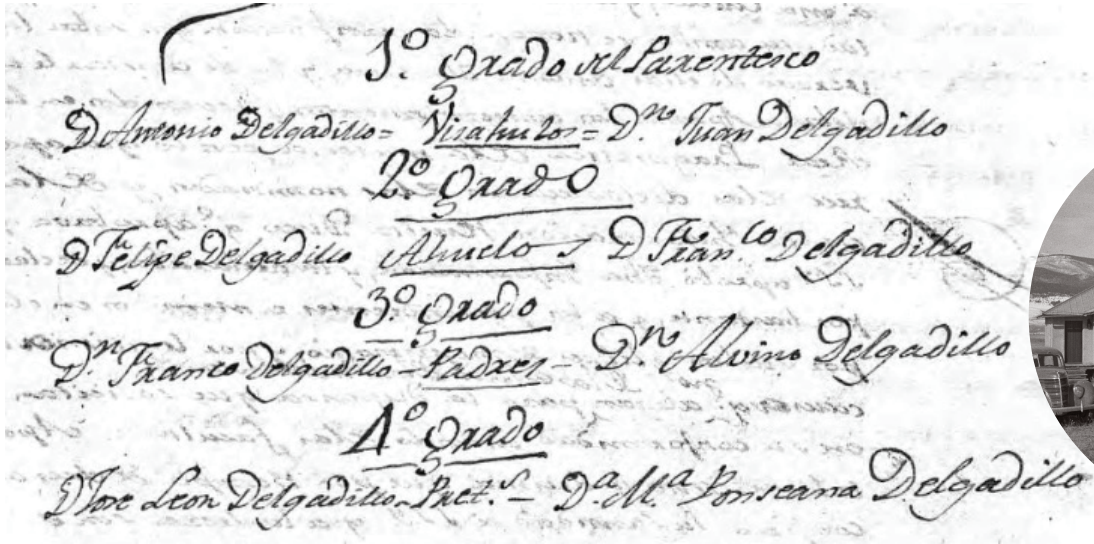 1º Grado del Parentesco
D Antonio Delgadillo = Visahulos = D.no Juan Delgadillo
2º Grado
D Felipe Delgadillo Ahuelos D Fran.co Delgadillo
3º Grado
D.n Franco Delgadillo - Padres - D.no Alvino Delgadillo
4º Grado
D Jose Leon Delgadillo - Pret.s - D.a M.a Ponseana Delgadillo